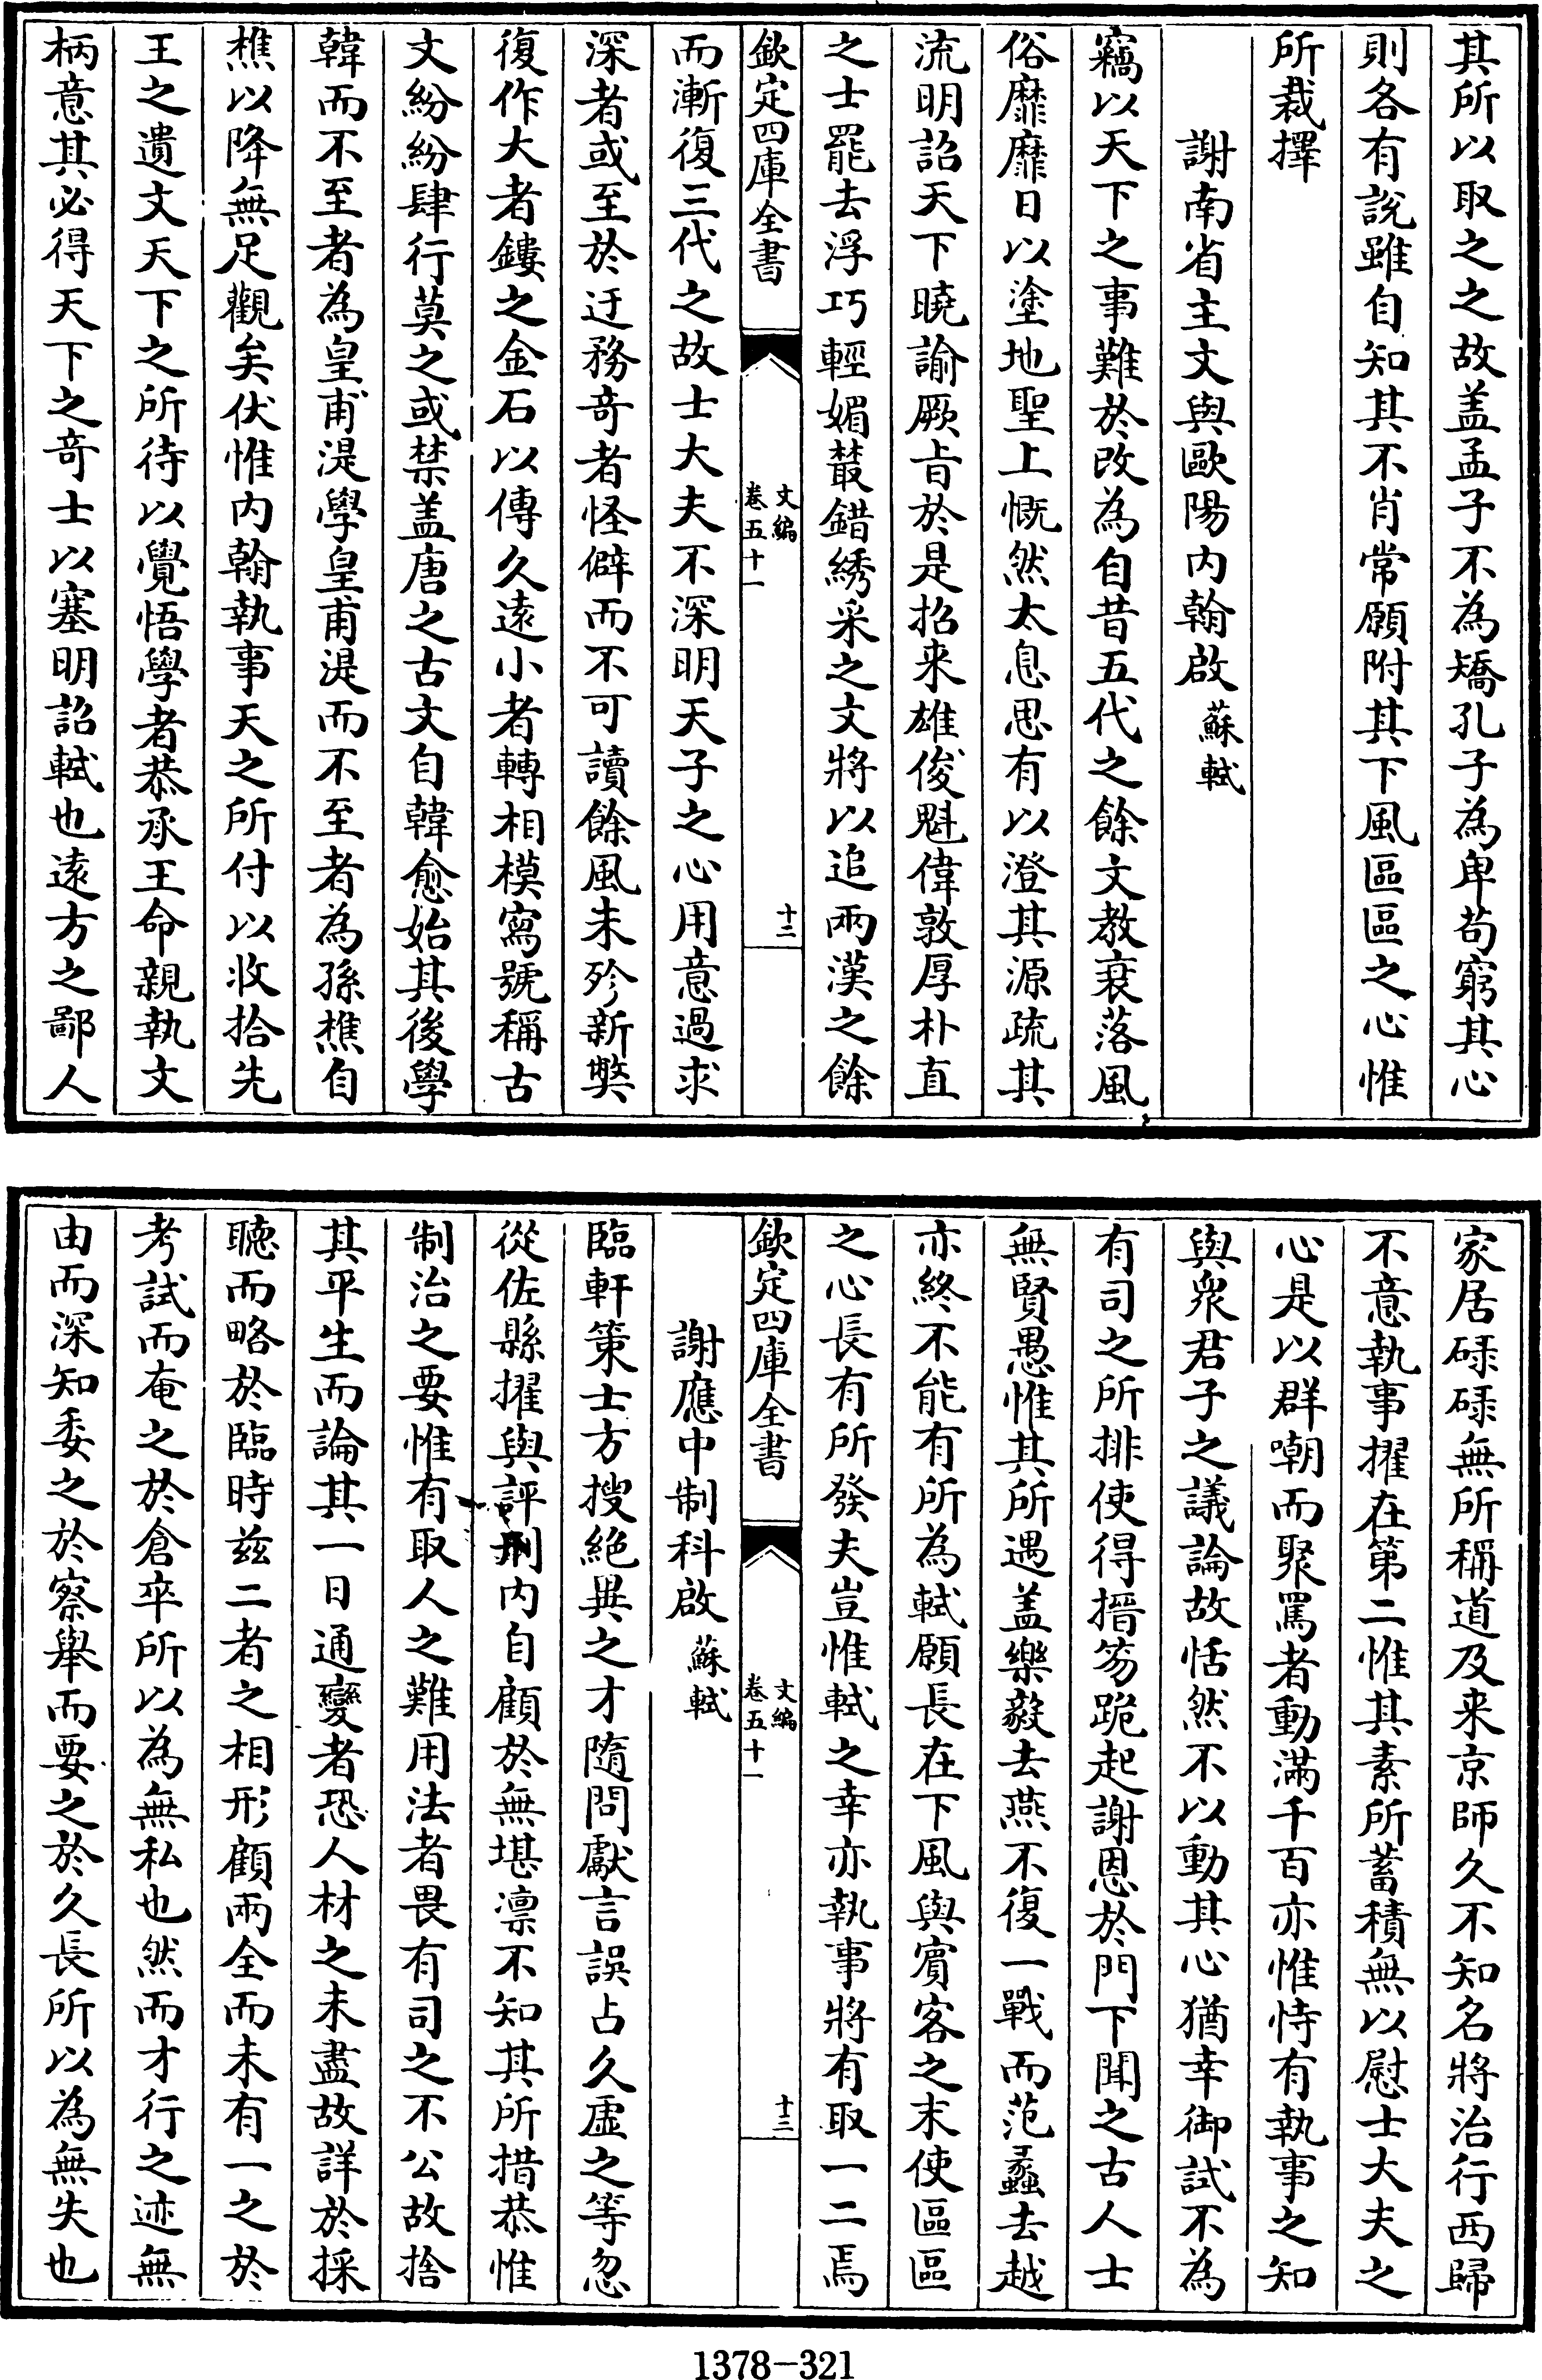 其所以取之之故盖孟子不為矯孔子為卑苟窮其心
則各有說雖自知其不肖常願附其下風區區之心惟
所裁擇
謝南省主文與歐陽内翰啟 蘇軾
竊以天下之事難於改為自昔五代之餘文教衰落風
俗靡靡日以塗地聖上慨然太息思有以澄其源疏其
流明詔天下曉諭厥㫖於是招来雄俊魁偉敦厚朴直
之士罷去浮巧輕媚叢錯綉采之文將以追兩漢之餘
欽定四庫全書 文編 卷五十一 十三
而漸復三代之故士大夫不深明天子之心用意過求
深者或至於迂務竒者怪僻而不可讀餘風未殄新弊
復作大者鏤之金石以傳久遠小者轉相模寫號稱古
文紛紛肆行莫之或禁盖唐之古文自韓愈始其後學
韓而不至者為皇甫湜學皇甫湜而不至者為孫樵自
樵以降無足觀矣伏惟内翰執事天之所付以收拾先
王之遺文天下之所待以覺悟學者恭承王命親執文
柄意其必得天下之竒士以塞明詔軾也遠方之鄙人
家居碌碌無所稱道及来京師久不知名將治行西歸
不意執事擢在第二惟其素所蓄積無以慰士大夫之
心是以群嘲而聚罵者動滿千百亦惟恃有執事之知
與衆君子之議論故恬然不以動其心猶幸御試不為
有司之所排使得搢笏跪起謝恩於門下聞之古人士
無賢愚惟其所遇盖樂毅去燕不復一戰而范蠡去越
亦終不能有所為軾願長在下風與賔客之末使區區
之心長有所發夫豈惟軾之幸亦執事將有取一二焉
欽定四庫全書 文編 卷五十一 十三
謝應中制科啟 蘇軾
臨軒策士方搜絶異之才隨問獻言誤占久虛之等忽
從佐縣擢與評刑内自顧於無堪凛不知其所措恭惟
制治之要惟有取人之難用法者畏有司之不公故捨
其平生而論其一日通變者恐人材之未盡故詳於採
聽而略於臨時兹二者之相形顧兩全而未有一之於
考試而奄之於倉卒所以為無私也然而才行之迹無
由而深知委之於察舉而要之於久長所以為無失也
1378-321